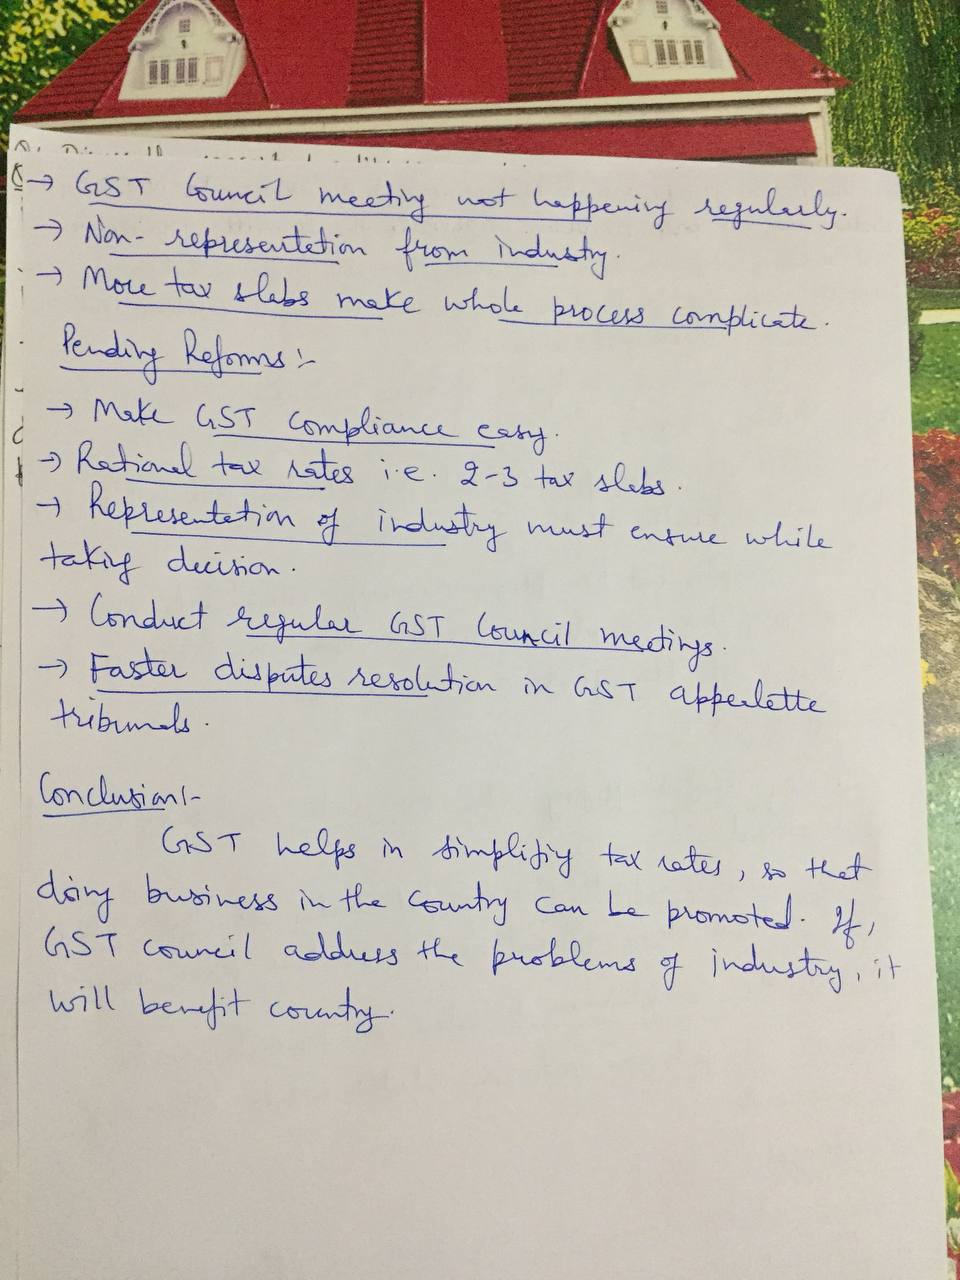 → GST Council meeting not happening regularly.
→ Non-representetion from industry.
→ More tax slabs make whole process complicate.
Pending Reforms:-
→ Make GST compliance easy.
→ Rational tax rates i.e. 2-3 tax slabs.
→ Representetion of industry must ensure while
taking decision.
→ Conduct regular GST Council meetings.
→ Faster disputes resolution in GST appealette
tribunals.
Conclusion:-
GST helps in simplifiy tax rates, so that
doing business in the country can be promoted. If,
GST council address the problems of industry, it
will benefit country.